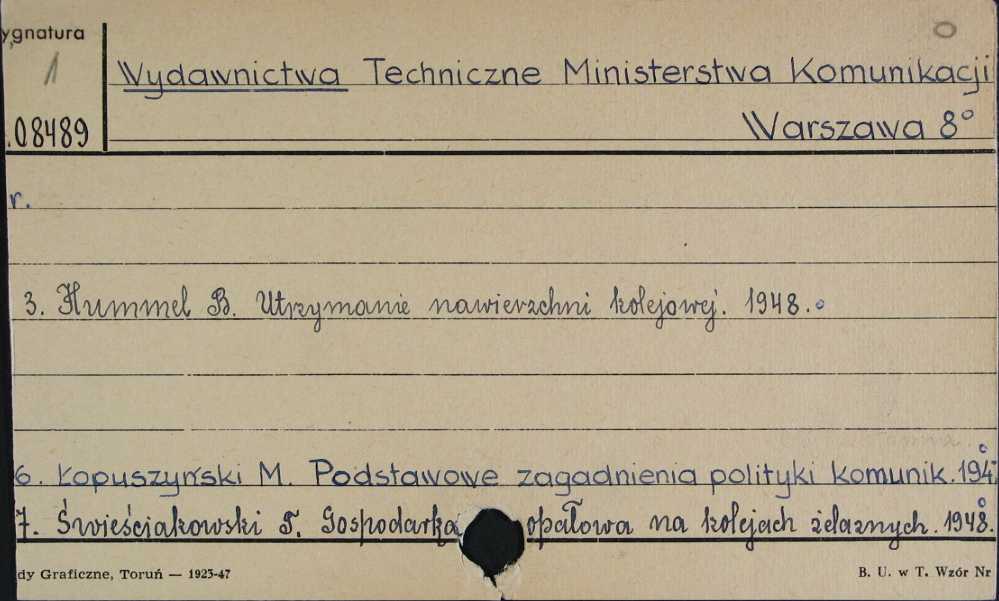 ygnatura
1
.08489
Wydawnictwa Techniczne Ministerstwa Komunikacji
Warszawa 8°
r.
3. Hummel B. Utrzymanie nawierzchni kolejowej. 1948.
6. Łopuszyński M. Podstawowe zagadnienia polityki komunik. 194
7. Świeściakowski T. Gospodarka opałowa na kolejach żelaznych. 1948.
dy Graficzne, Toruń — 1925-47
B. U. w T. Wzór Nr